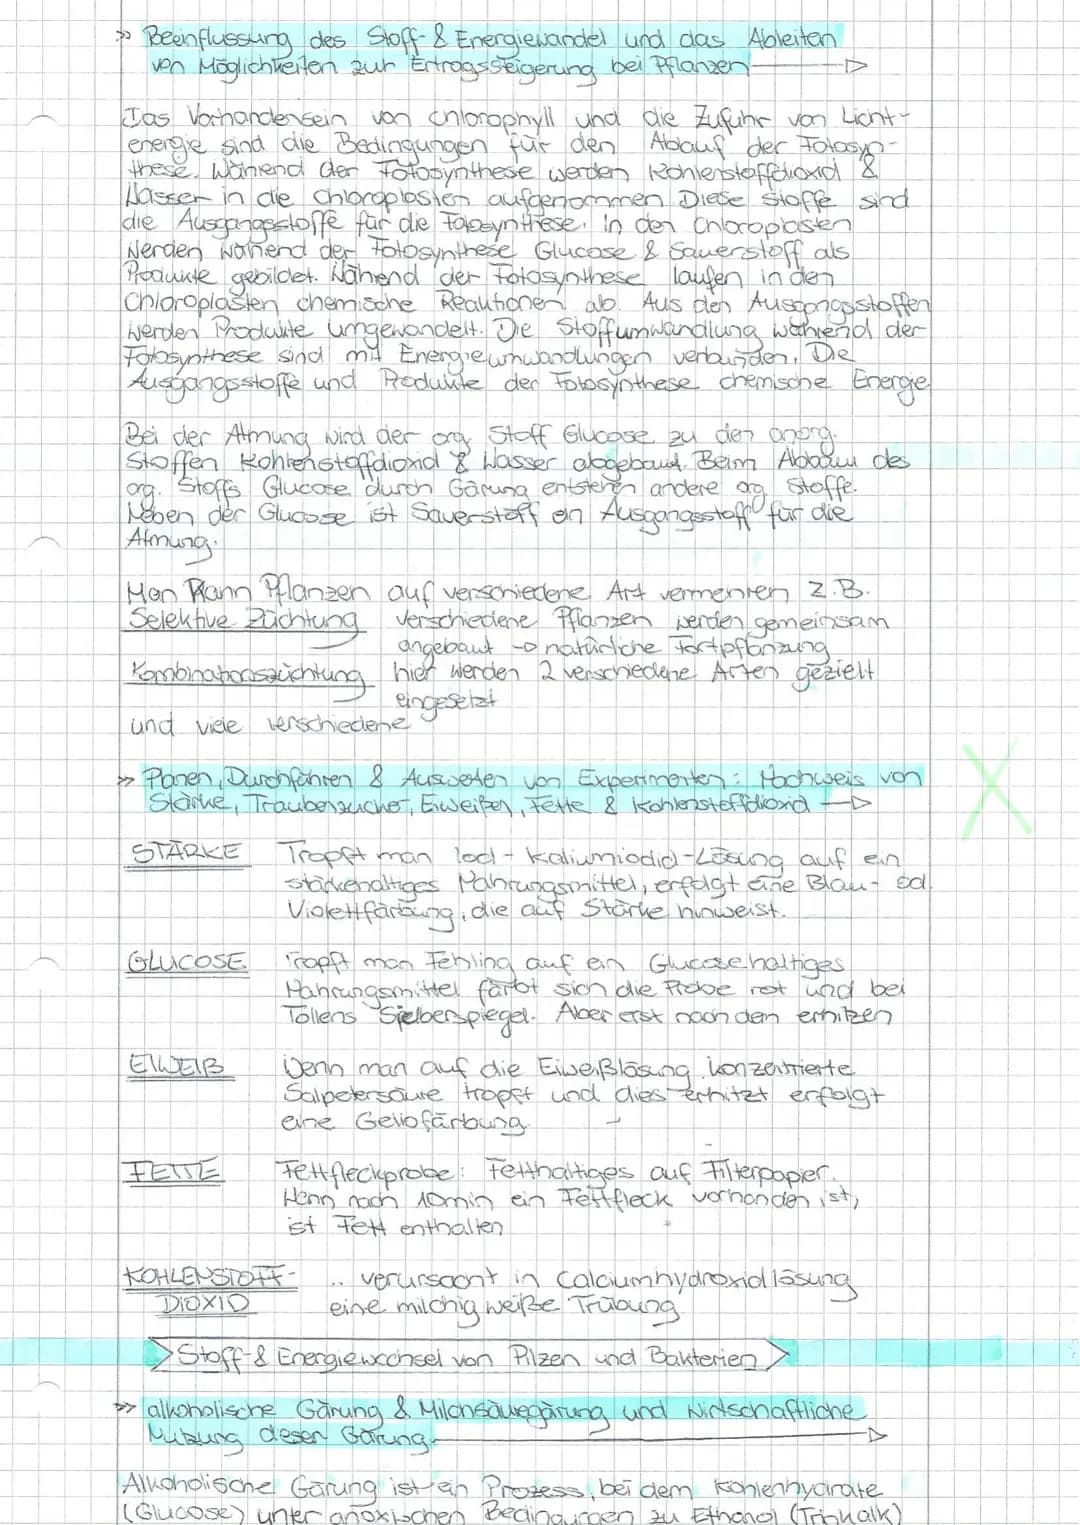 >> Beeinflussung des Stoff- & Energiewandel und das Ableiten
von Möglichkeiten zur Ertragssteigerung bei Pflanzen
Das Vorhandensein von Chlorophyll und die Zufuhr von Licht-
energie sind die Bedingungen für den Ablauf der Fotosyn-
these. Während der Fotosynthese werden Kohlenstoffdioxid &
Wasser in die Chloroplasten aufgenommen. Diese Stoffe sind
die Ausgangsstoffe für die Fotosynthese. In den Chloroplasten
werden während der Fotosynthese Glucose & Sauerstoff als
Produkte gebildet. Während der Fotosynthese laufen in den
Chloroplasten chemische Reaktionen ab. Aus den Ausgangsstoffen
werden Produkte umgewandelt. Die Stoffumwandlung während der
Fotosynthese sind mit Energieumwandlungen verbunden. Die
Ausgangsstoffe und Produkte der Fotosynthese chemische Energie
Bei der Atmung wird der org. Stoff Glucose zu den anorg.
Stoffen Kohlenstoffdioxid & Wasser abgebaut. Beim Abbau des
org. Stoffs Glucose durch Gärung entstehen andere org. Stoffe.
Neben der Glucose ist Sauerstoff ein Ausgangsstoff für die
Atmung.
Man kann Pflanzen auf verschiedene Art vermehren z.B.
Selektive Züchtung verschiedene Pflanzen werden gemeinsam
angebaut → natürliche Fortpflanzung
Kombinationszüchtung hier werden 2 verschiedene Arten gezielt
eingesetzt
und viele verschiedene
>> Planen, Durchführen & Auswerten von Experimenten: Nachweis von
Stärke, Traubenzucker, Eiweißen, Fette & Kohlenstoffdioxid
STÄRKE Tropft man Iod-Kaliumiodid-Lösung auf ein
stärkehaltiges Nahrungsmittel, erfolgt eine Blau- od.
Violettfärbung, die auf Stärke hinweist.
GLUCOSE Tropft man Fehling auf ein Glucosehaltiges
Nahrungsmittel färbt sich die Probe rot und bei
Tollens Sielberspiegel. Aber erst nach dem erhitzen
EIWEIß Wenn man auf die Eiweißlösung konzentrierte
Salpetersäure tropft und dies erhitzt erfolgt
eine Gelbfärbung
FETTE Fettfleckprobe: Fetthaltiges auf Filterpapier.
Wenn nach 10min ein Fettfleck vorhanden ist,
ist Fett enthalten
KOHLENSTOFF- .. verursacht in Calciumhydroxidlösung
DIOXID eine milchig weiße Trübung
Stoff- & Energiewechsel von Pilzen und Bakterien
>> alkoholische Gärung & Milchsäuregärung und wirtschaftliche
Nutzung dieser Gärung
Alkoholische Gärung ist ein Prozess, bei dem Kohlenhydrate
(Glucose) unter anoxischen Bedingungen zu Ethanol (Trinkalk)